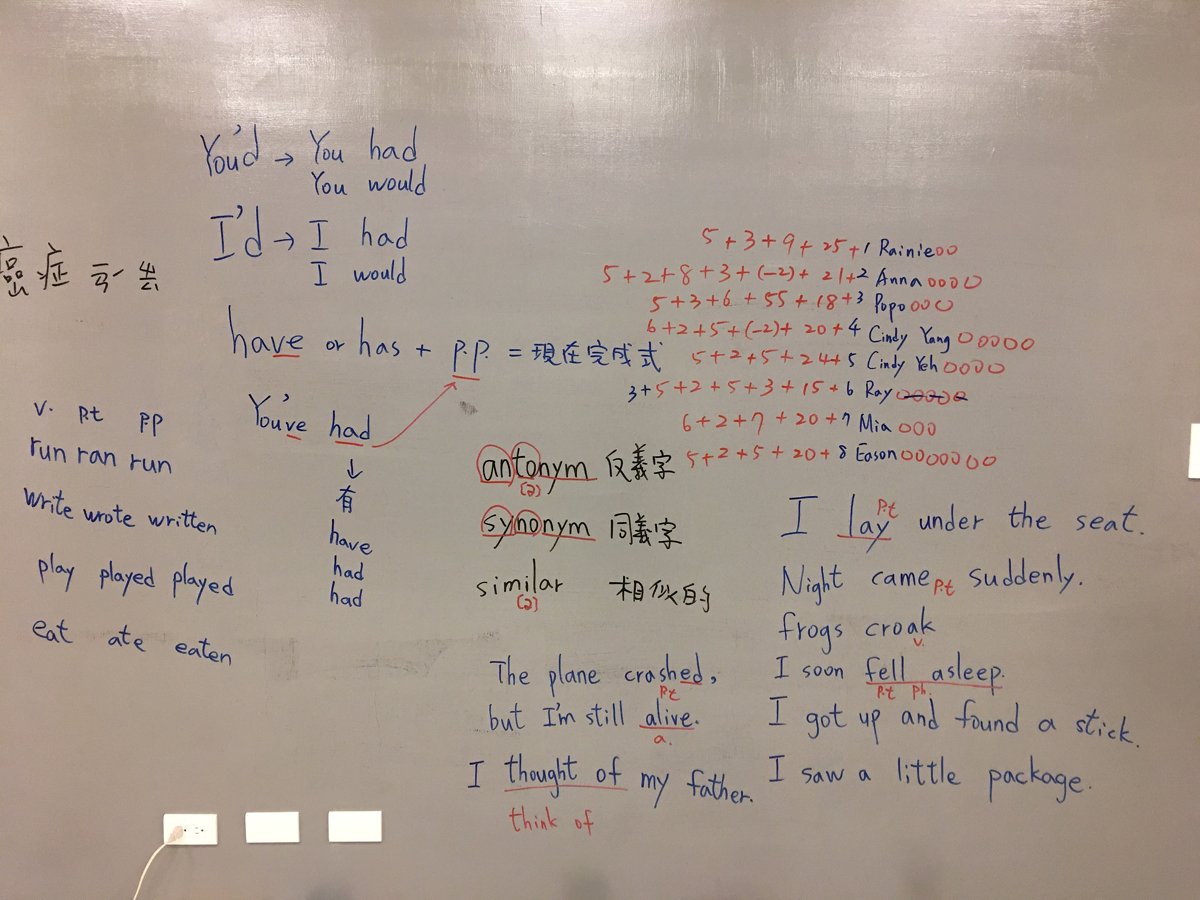 You'd → You had
You would
I'd → I had
I would
癌症
have or has + p.p. = 現在完成式
You've had
↓
有
have
had
had
v. p.t p.p
run ran run
write wrote written
play played played
eat ate eaten
5+3+9+25+1 Rainie OO
5+2+8+3+(-2)+21+2 Anna OOOO
5+3+6+55+18+3 Popo OOO
6+2+5+(-2)+20+4 Cindy Yang OOOOO
5+2+5+24+5 Cindy Yeh OOOO
3+5+2+5+3+15+6 Ray OOOOO
6+2+7+20+7 Mia OOO
5+2+5+20+8 Eason OOOOOOO
antonym 反義字
(2)
synonym 同義字
similar 相似的
(2)
The plane crashed,
p.t
but I'm still alive.
a.
I thought of my father.
think of
p.t
I lay under the seat.
Night came p.t suddenly.
frogs croak
v.
I soon fell asleep.
p.t ph.
I got up and found a stick.
I saw a little package.